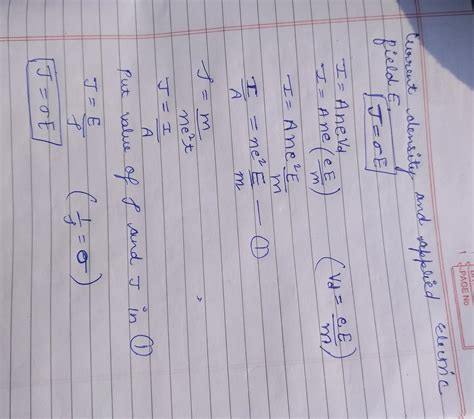 PAGE No
Current density and applied electric
field E
J = σE
I = AneVd
I = Ane (eE/m) (Vd = eE/m)
I = Ane²E/m
I/A = ne²E/m — ①
ρ = m/ne²t
J = I/A
Put value of ρ and J in ①
J = E/ρ (1/ρ = σ)
J = σE